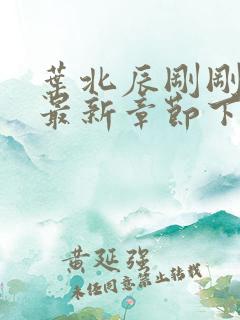 叶北辰刚刚
最新章节下
黄延强
未经同意禁止转载